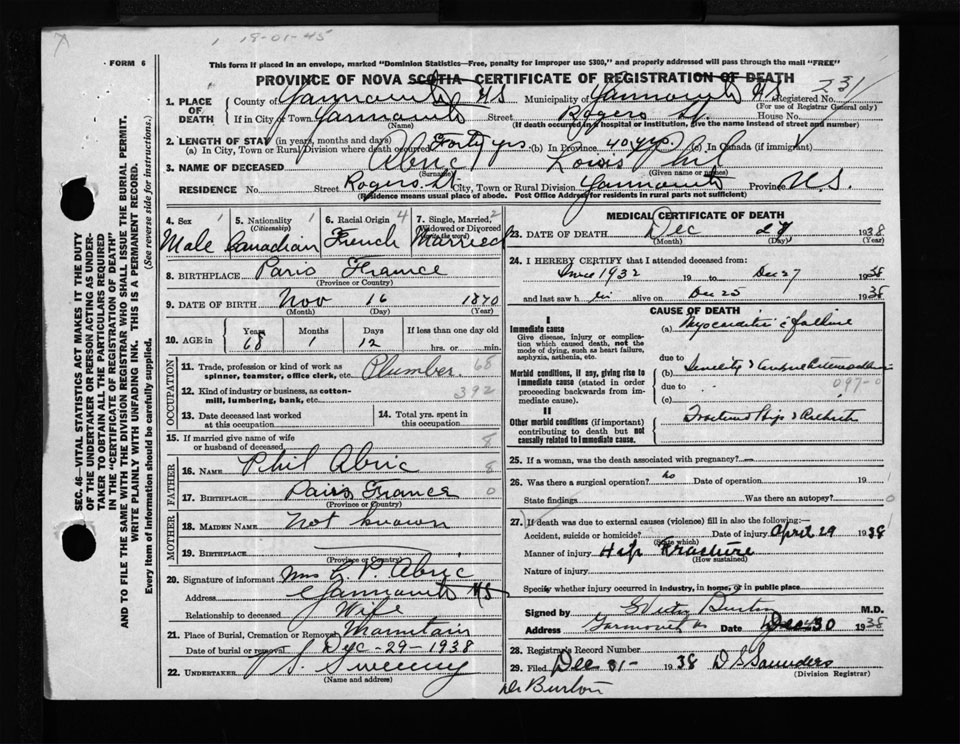 1 19-01-45
FORM 6
This form if placed in an envelope, marked "Dominion Statistics—Free, penalty for improper use $300," and properly addressed will pass through the mail "FREE"
PROVINCE OF NOVA SCOTIA CERTIFICATE OF REGISTRATION OF DEATH
231
1. PLACE OF DEATH
County of Yarmouth NS Municipality of Yarmouth NS Registered No.
(For use of Registrar General only)
If in City or Town Yarmouth Street Rogers St. House No.
(Name) (If death occurred in a hospital or institution, give the name instead of street and number)
2. LENGTH OF STAY (in years, months and days)
(a) In City, Town or Rural Division where death occurred Forty yrs. (b) In Province 40 yrs. (c) In Canada (if immigrant)
3. NAME OF DECEASED Abric Louis Phil
(Surname) (Given name or names)
RESIDENCE No. Street Rogers St. City, Town or Rural Division Yarmouth Province N.S.
(Residence means usual place of abode. Post Office Address for residents in rural parts not sufficient)
4. Sex 1
Male
5. Nationality 1
(Citizenship)
Canadian
6. Racial Origin 4
French
7. Single, Married, 2
Widowed or Divorced
(write the word)
Married
8. BIRTHPLACE Paris France
(Province or Country)
9. DATE OF BIRTH Nov 16 1870
(Month) (Day) (Year)
10. AGE in Years Months Days If less than one day old
68 1 12 hrs. or min.
OCCUPATION
11. Trade, profession or kind of work as spinner, teamster, office clerk, etc. Plumber 68
12. Kind of industry or business, as cotton-mill, lumbering, bank, etc. 392
13. Date deceased last worked at this occupation
14. Total yrs. spent in this occupation
15. If married give name of wife or husband of deceased 8
FATHER
16. NAME Phil Abric 8
17. BIRTHPLACE Paris France 0
(Province or Country)
MOTHER
18. MAIDEN NAME Not known
19. BIRTHPLACE
(Province or Country)
20. Signature of informant Mrs L. P. Abric
Address Yarmouth NS
Relationship to deceased Wife
21. Place of Burial, Cremation or Removal Mountain
Date of burial or removal Dec-29-1938
22. UNDERTAKER Sweeny
(Name and address)
MEDICAL CERTIFICATE OF DEATH
23. DATE OF DEATH Dec 27 1938
(Month) (Day) (Year)
24. I HEREBY CERTIFY that I attended deceased from:
Since 1932 19 to Dec 27 1938
and last saw him alive on Dec 25 1938
CAUSE OF DEATH
I
Immediate cause
Give disease, injury or complication which caused death, not the mode of dying, such as heart failure, asphyxia, asthenia, etc.
(a) Myocarditic failure
due to
Morbid conditions, if any, giving rise to immediate cause (stated in order proceeding backwards from immediate cause).
(b) Senility &
due to 097-0
(c)
II
Other morbid conditions (if important) contributing to death but not causally related to immediate cause.
Fractured hip &
25. If a woman, was the death associated with pregnancy?
26. Was there a surgical operation? no Date of operation 19
State findings Was there an autopsy? 0
27. If death was due to external causes (violence) fill in also the following:—
Accident, suicide or homicide? Date of injury April 29 1938
(State which)
Manner of injury Hip Fracture
(How sustained)
Nature of injury
Specify whether injury occurred in industry, in home, or in public place
Signed by Burton M.D.
Address Yarmouth NS Date Dec 30 1938
28. Registrar's Record Number
29. Filed Dec 31- 1938 D S Saunders
(Division Registrar)
Dr Burton
SEC. 46—VITAL STATISTICS ACT MAKES IT THE DUTY OF THE UNDERTAKER OR PERSON ACTING AS UNDERTAKER TO OBTAIN ALL THE PARTICULARS REQUIRED IN THE "CERTIFICATE OF REGISTRATION OF DEATH"
AND TO FILE THE SAME WITH THE DIVISION REGISTRAR WHO SHALL ISSUE THE BURIAL PERMIT.
WRITE PLAINLY WITH UNFADING INK. THIS IS A PERMANENT RECORD.
Every item of Information should be carefully supplied. (See reverse side for instructions.)